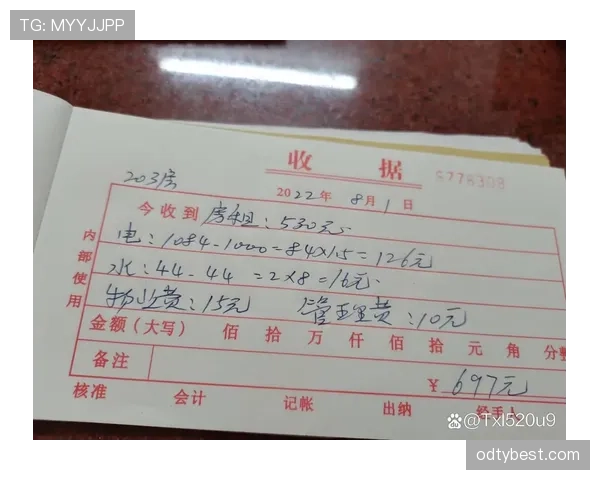 TG: MYYJJPP
收 据
6778303
203房
2022年 8月1日
今收到房租：530元
电：1084-1000=84×1.5=126元
水：44-44 =2×8=16元.
物业费：15元 管理费：10元
金额（大写） 佰 拾 万 仟 佰 拾 元 角 分整
备注
¥ 697元
内部使用
核准 会计 记帐 出纳 经手人
@Txl520u9
odtybest.com